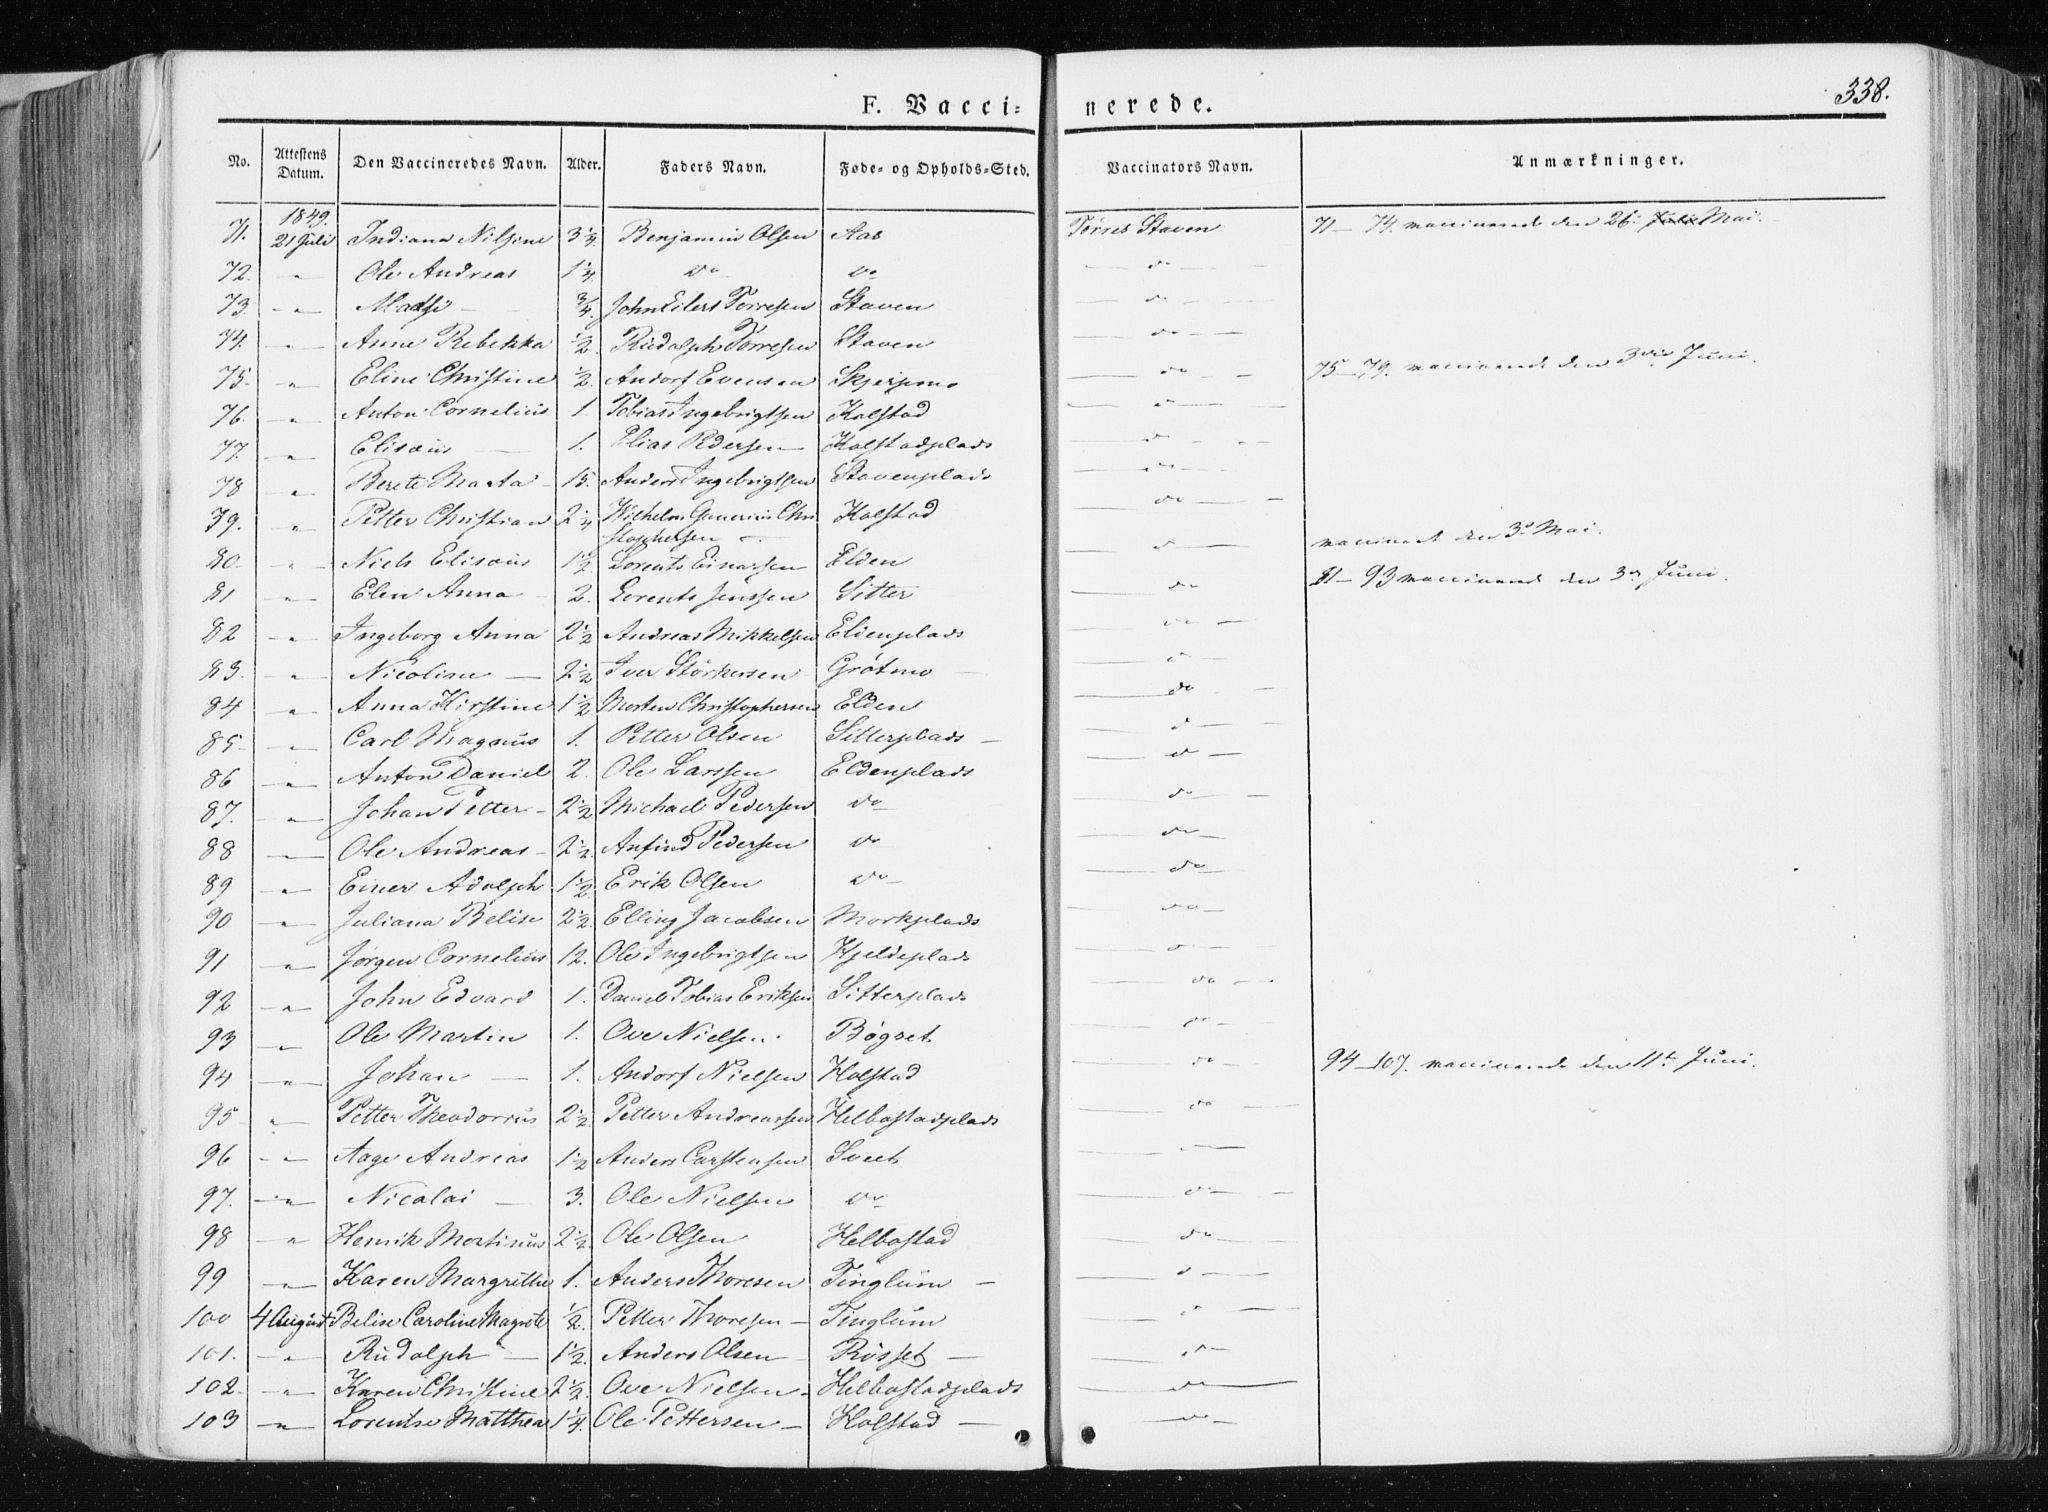 F. Vacci= nerede. 338.
No. Attestens Datum. Den Vaccineredes Navn. Alder. Faders Navn. Føde= og Opholds=Sted. Vaccinators Navn. Anmærkninger.
71. 1849. 21 Juli Indiana Nilsine 3 1/4 Benjamin Olsen Aas Tørres Staven 71 – 74. vaccinerede den 26. Mai.
72. – " – Ole Andreas 1 1/4. do – do – do –
73. – " – 3/4. John Eilert Torresen Staven – do –
74. – " – Anne Rebekka 1/2. Rudolph Torresen Staven – do –
75. – " – Eline Christine 1/2. Andorf Evensen Skjerpmo – do – 75 – 79. vaccinerede den 3die Juni.
76. – " – Anton Cornelius 1. Tobias Ingebrigtsen Kolstad – do –
77. – " – Elisæus – 1. Elias Pedersen – Kolstadplads – do –
78 – " – Berete Marta – 15. Anders Ingebrigtsen Stavenplads – do –
79. – " – Petter Christian 2 1/4 Wilhelm Gunerius Chri Kolstad – do –
stophersen –
80. – " – Niels Elisæus 1 1/2 Lorents Einarsen Elden – do – vaccineret den 3d Mai.
81 – " – Elen Anna – 2. Lorents Jenssen Sitter – do – 81 – 93 vaccinerede den 3die Juni.
82 – " – Ingeborg Anna 2 1/2 Andreas Mikkelsen Eldenplads – do –
83. – " – Nicoline – 2 1/2 Iver Størkersen Grøtmo – – do –
84 – " – Anna Kirstine 1 1/2 Morten Christophersen Elden – do –
85 – – " – Carl Magnus 1. Petter Olsen Sitterplads – – do –
86 – " – Anton Daniel 2. Ole Larssen Eldenplads – do –
87. – " – Johan Petter – 2 1/2 Michael Pedersen do – – do –
88 – " – Ole Andreas – 2 1/2. Anfind Pedersen do – do –
89 – " – Einer Adolph 1 1/2 Erik Olsen do – – do –
90 – " – Juliana Belise 2 1/2. Elling Jacobsen Morkplads – do –
91 – " – Jørgen Cornelius 12. Ole Ingebrigtsen Hjeldeplads – do –
92 – " – John Edvard 1. Daniel Tobias Eriksen Sitterplads – do –
93 – " – Ole Martin 1. Ove Nielsen. Bøgset – do –
94 – " – Johan – 1. Andorf Nielsen Holstad – do – 94 – 107. vaccinerede den 11te Juni.
95 – – " – Petter Theodorius 2 1/2 Petter Andreassen Helbostadplads – do –
96 – " – Aage Andreas 1 1/2 Anders Carstensen Sveet – do –
97. – " – Nicolai – 3. Ole Nielsen do – – do –
98 – " – Henrik Mortinus 2 1/2. Ole Olsen Helbostad – do –
99 – " – Karen Margrethe 1. Anders Thoresen Tinglum – – do –
100 4 August Belise Caroline Magrete 1/2. Petter Thoresen – Tinglum – do –
101. – " – Rudolph – 1 1/2. Anders Olsen – Røsset – – do –
102. – " – Karen Christine 2 1/2. Ove Nielsen – Helbostadplads – do –
103 – " – Lorentse Matthea 1 1/4. Ole Pettersen – Holstad – – do –